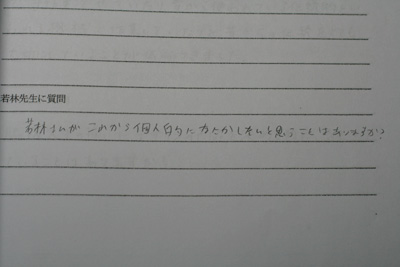 若林先生に質問
若林さんが これから個人的に あたかしたいと思うことはありますか?